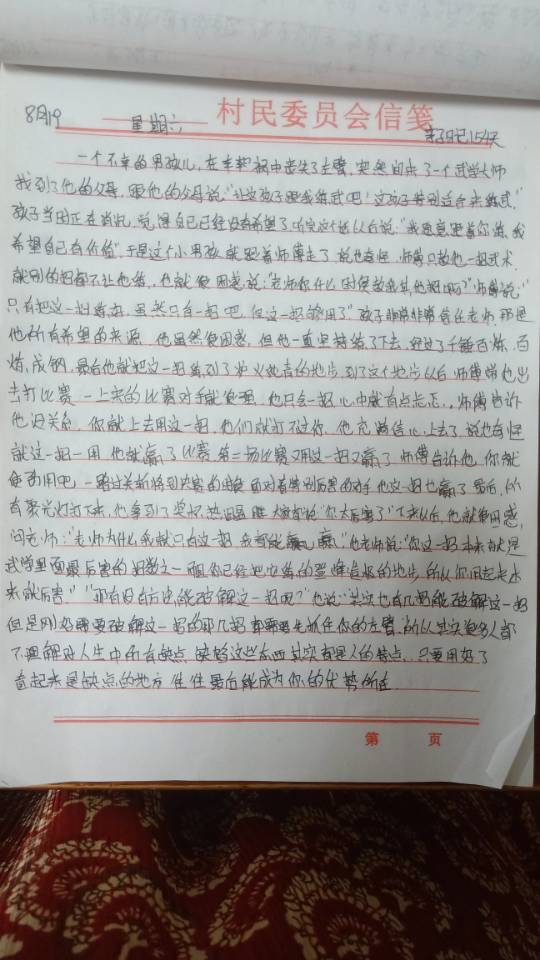 村民委员会信笺
8月19 星期六 亲子日记154天
一个不幸的男孩儿，在车祸祸中丧失了左臂，突然间来了一个武学大师
找到了他的父母，跟他的父母说"让这孩子跟我练武吧！这孩子特别适合来练武"
孩子当时正在消沉，觉得自己已经没有希望了，听完这个话以后说："我愿意跟着你练，我
希望自己有价值"，于是这个小男孩就跟着师傅走了，说也奇怪，师傅只教他一招武术，
就别的招都不让他练，他就很困惑说："老师你什么时候教我其他招啊？"师傅说："
只有把这一招练好，虽然只有一招吧，但这一招够用了"孩子非常非常信任老师，那是
他所有希望的来源，他虽然很困惑，但他一直坚持练了下去，经过了千锤百炼，百
炼成钢，最后他就把这一招练到了炉火纯青的地步，到了这个地步以后，师傅带他出
去打比赛，一上来的比赛对手就很强，他只会一招心中就有点忐忑，师傅告诉
他没关系，你就上去用这一招，他们就打不过你，他充满信心上去了，说也奇怪
就这一招一用，他就赢了比赛，第二场比赛又用这一招又赢了，师傅告诉他，你就
使劲用吧，一路过关斩将到决赛的时候面对着特别厉害的对手他这一招也赢了，最后，所
有聚光灯打下来，他拿到了奖杯，大家都说"你太厉害了"下来以后，他就很困惑，
问老师："老师为什么我就只有这一招，我都能赢，"他老师说："你这一招本来就是
武学里面最厉害的招数之一，而你已经把它练的登峰造极的地步，所以你用起来本
来就厉害""那有没有方法能破解这一招呢？"他说："其实也有几招能破解这一招
但是别招要破解这一招的那几招，都需要先抓住你的左臂，所以其实很多人都
不理解对人生中所有缺点、缺憾这些东西其实都是人的特点，只要用好了
看起来是缺点的地方往往最后能成为你的优势所在。
第 页